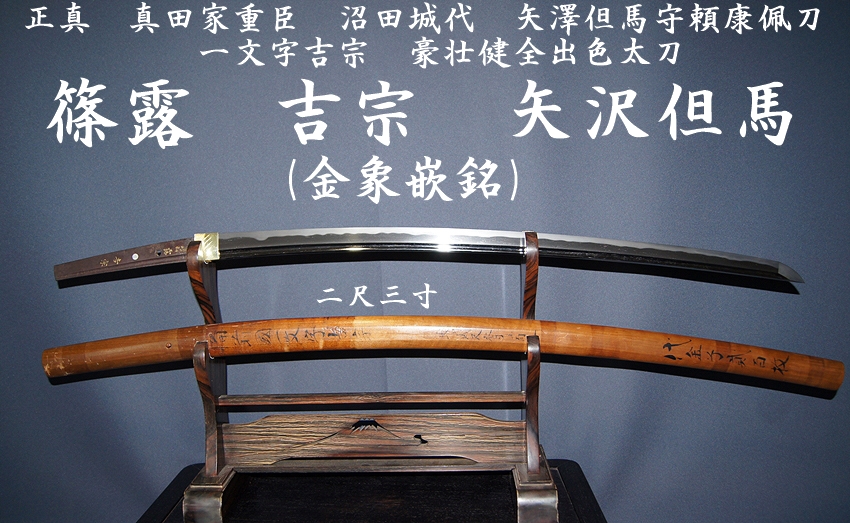 正真　真田家重臣　沼田城代　矢澤但馬守頼康佩刀
一文字吉宗　豪壮健全出色太刀
篠露　吉宗　矢沢但馬
(金象嵌銘)
二尺三寸
代金子貳百枚